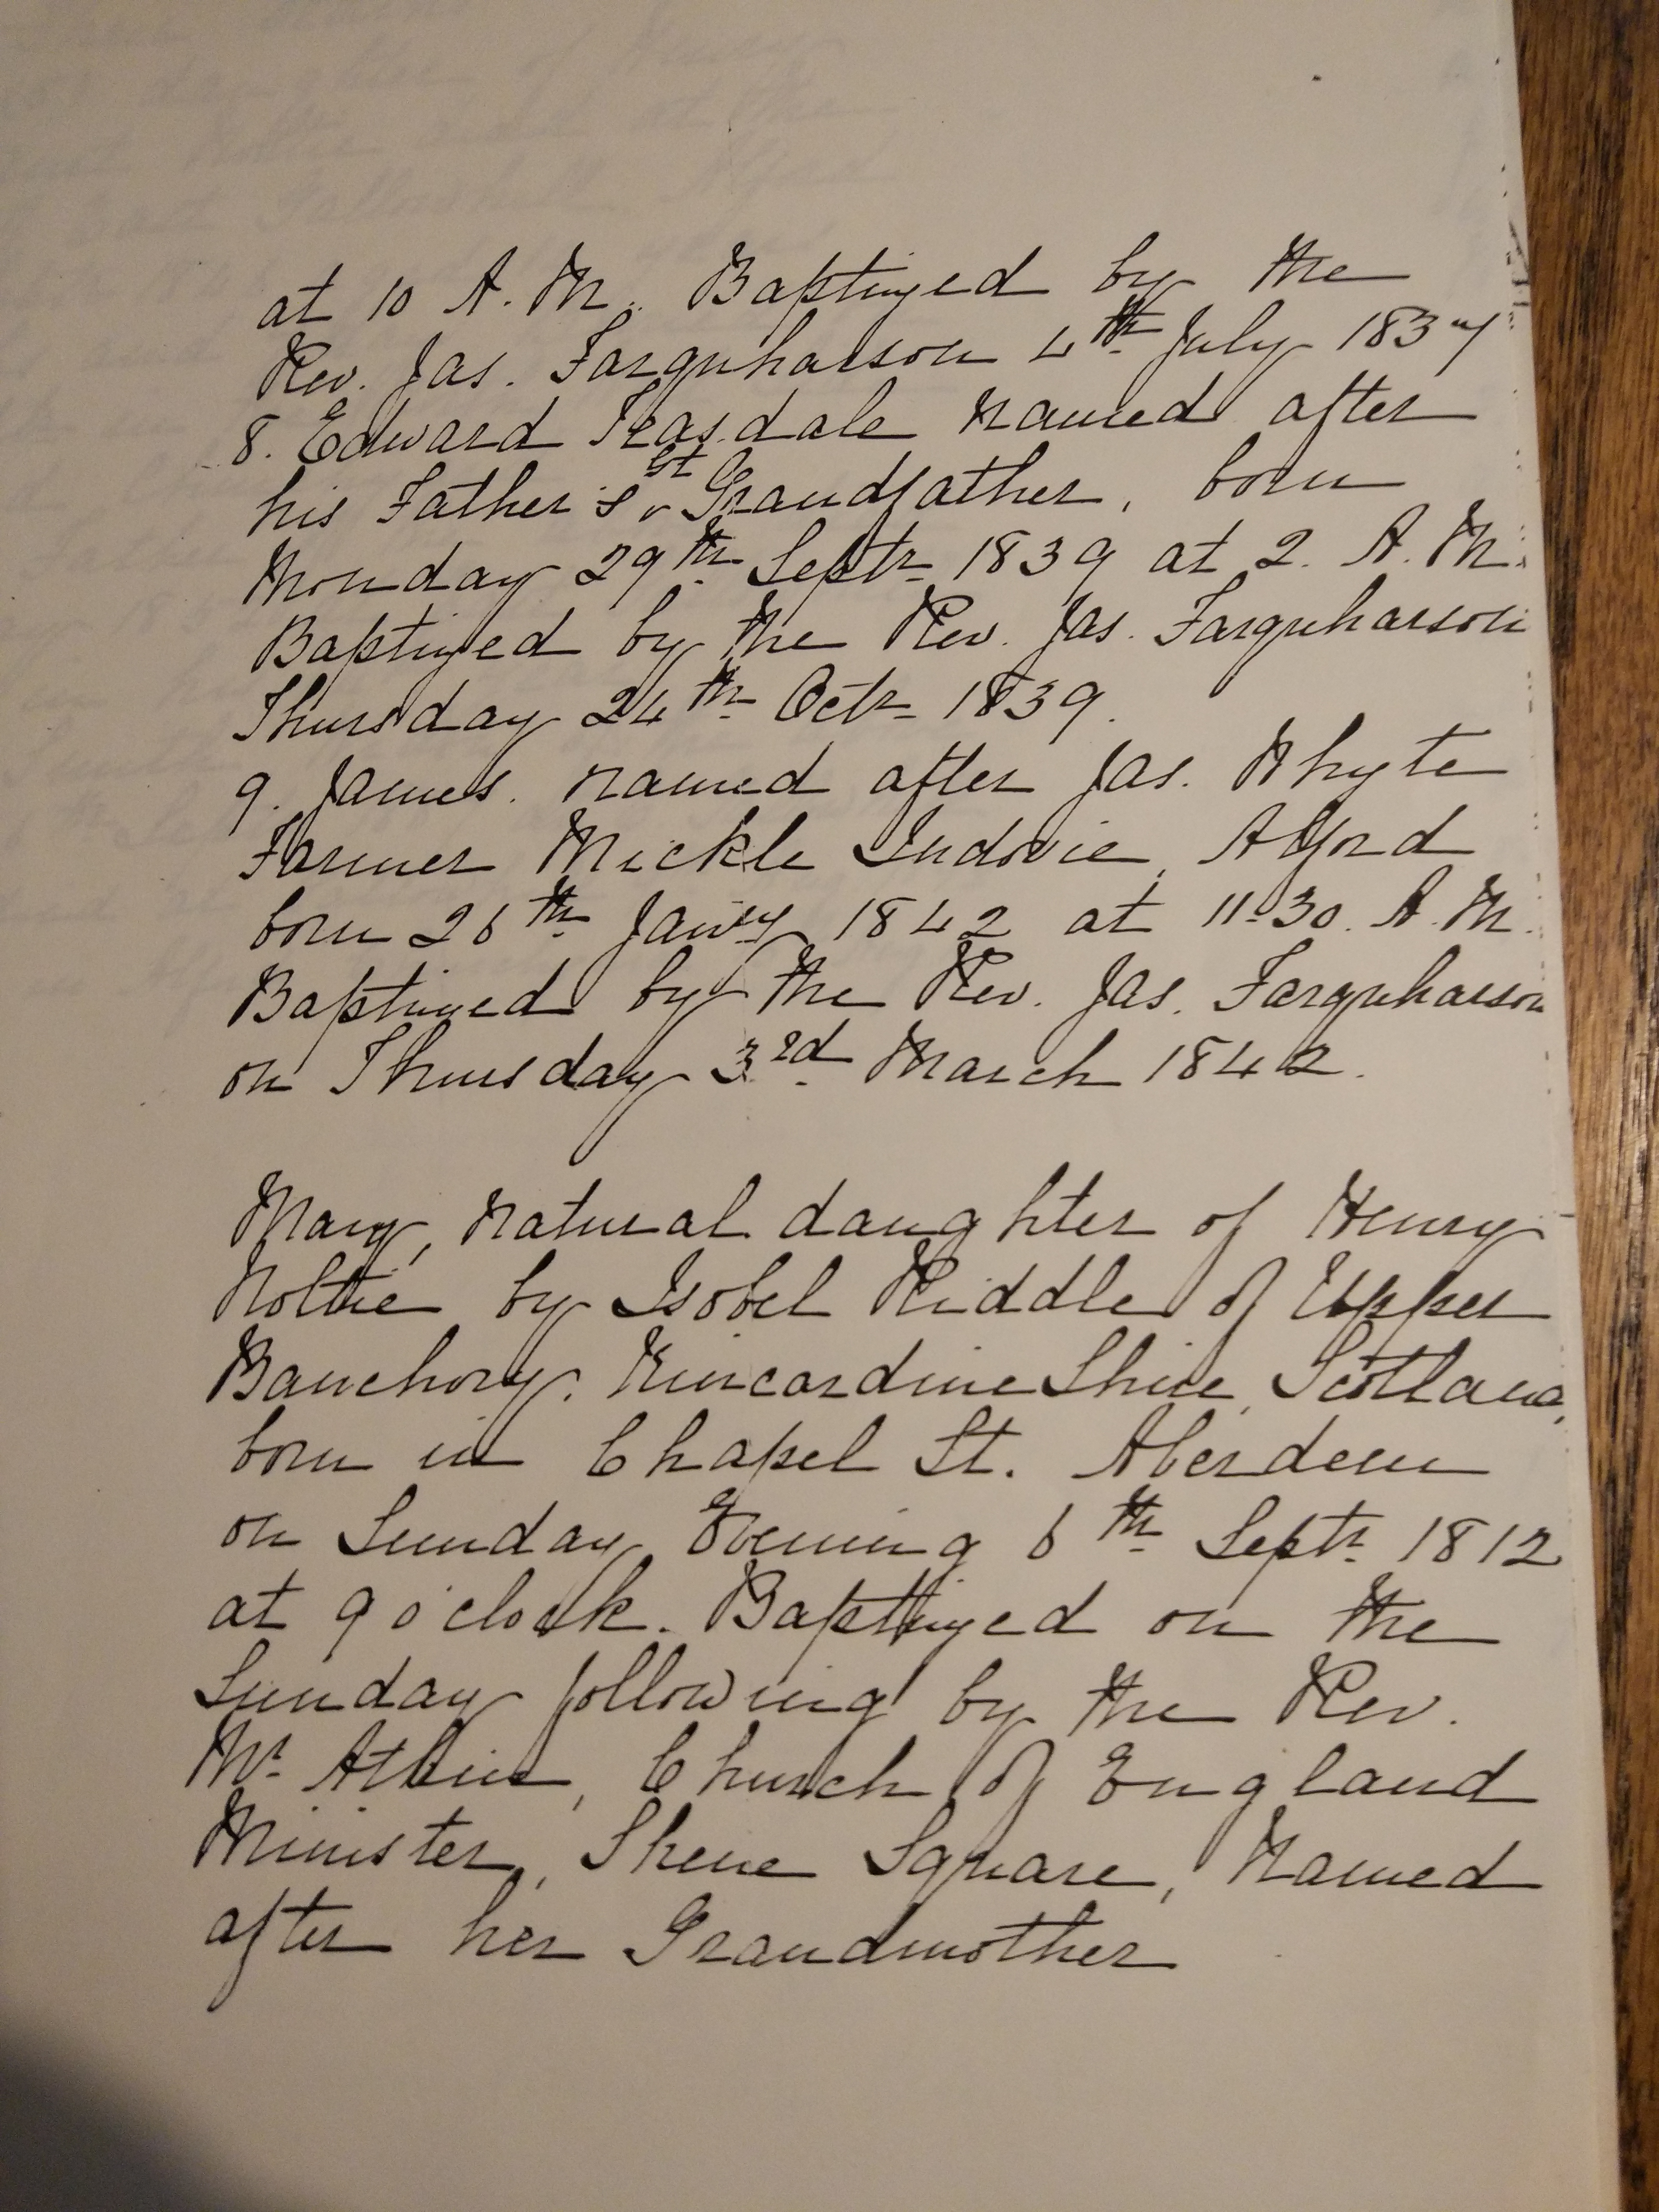 at 10 A.M. Baptized by the
Rev. Jas. Farquharson 4th July 1837
8. Edward Teasdale named after
his Father's Gt Grandfather, born
Monday 29th Septr 1839 at 2. A.M.
Baptized by the Rev. Jas. Farquharson
Thursday 24th Octr 1839.
9. James. named after Jas. Whyte
Farmer Mickle Indovie, Alford
born 26th Jany 1842 at 11.30. A.M.
Baptized by the Rev. Jas. Farquharson
on Thursday 3rd March 1842.
Mary, natural daughter of Henry
Noltie by Isobel Riddle of Upper
Banchory. Kincardine Shire, Scotland,
born in Chapel St. Aberdeen
on Sunday Evening 6th Septr 1812
at 9 o'clock. Baptized on the
Sunday following by the Rev.
Mr Church of England
Minister, Skene Square, Named
after her Grandmother